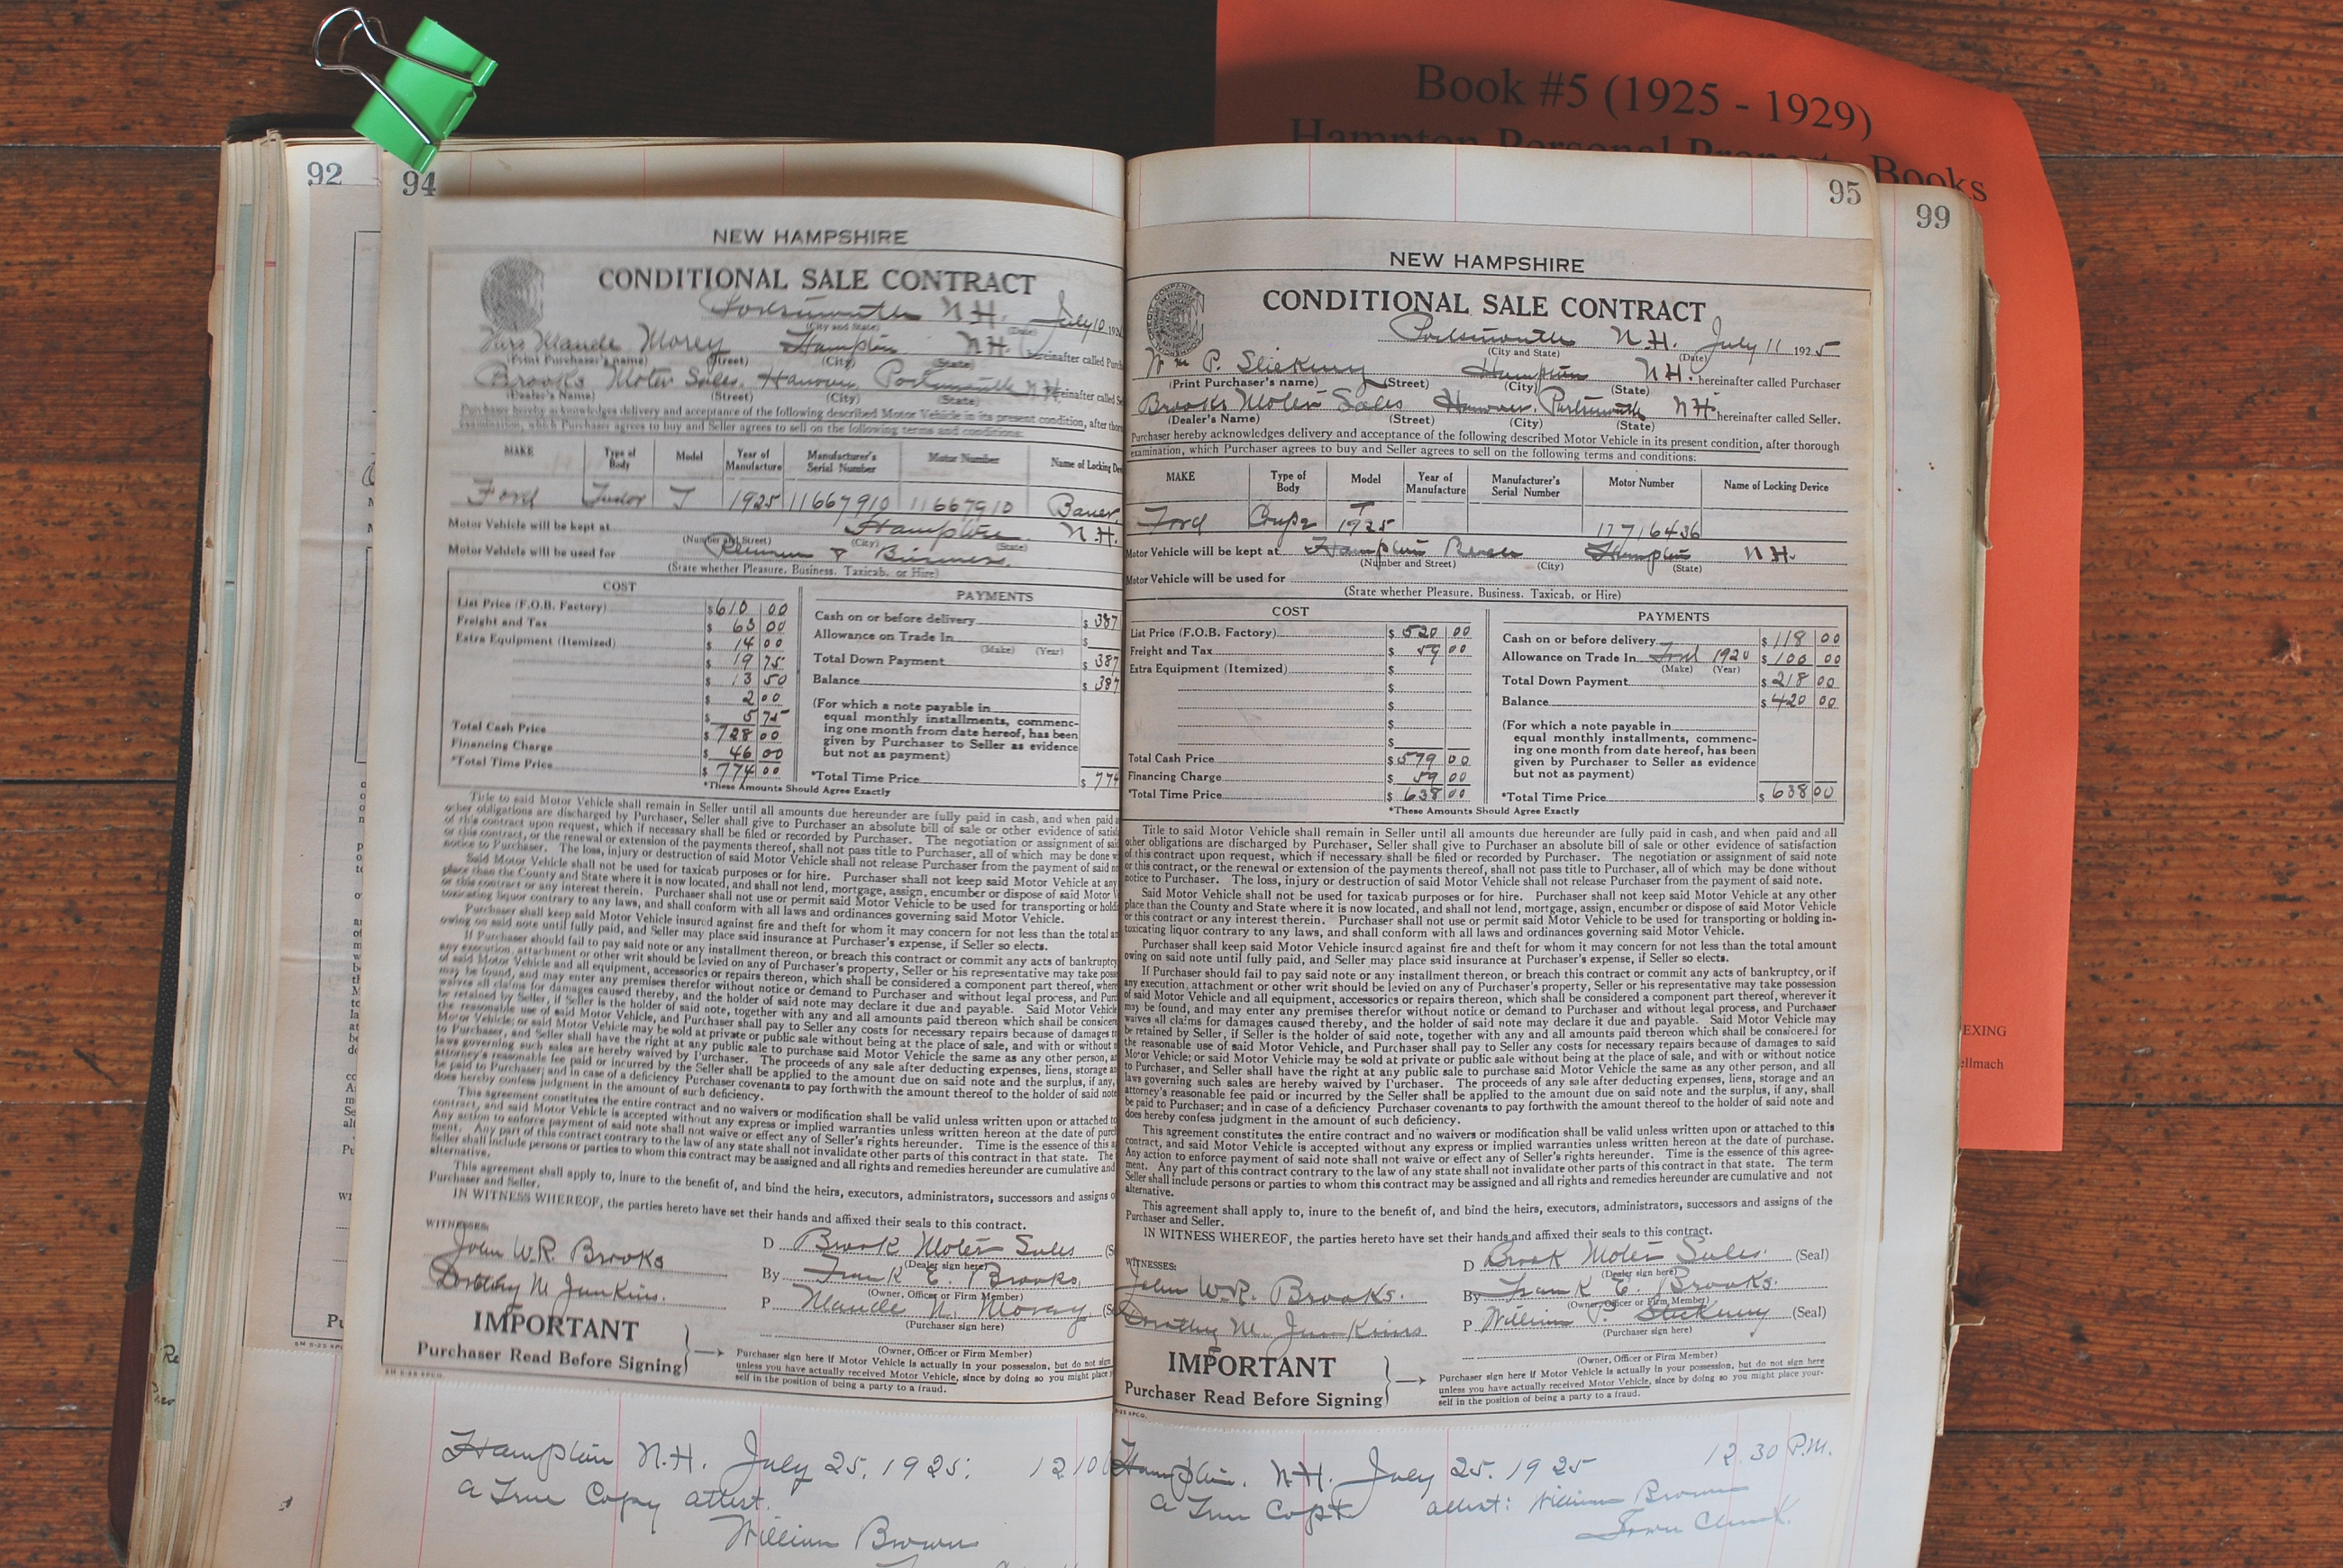 Book #5 (1925 - 1929)
Hampton Personal Property Books
92
94
NEW HAMPSHIRE
CONDITIONAL SALE CONTRACT
Portsmouth N.H. July 10 192
(City and State) (Date)
Mrs Maude Morey Hampton N.H. hereinafter called Purch
(Print Purchaser's name) (Street) (City) (State)
Brooks Motor Sales. Hanover, Portsmouth N.H. hereinafter called Se
(Dealer's Name) (Street) (City) (State)
Purchaser hereby acknowledges delivery and acceptance of the following described Motor Vehicle in its present condition, after thor
examination, which Purchaser agrees to buy and Seller agrees to sell on the following terms and conditions:
MAKE Type of Body Model Year of Manufacture Manufacturer's Serial Number Motor Number Name of Locking Dev
Ford Tudor T 1925 11667910 11667910 Bauer.
Motor Vehicle will be kept at Hampton N.H.
(Number and Street) (City) (State)
Motor Vehicle will be used for Pleasure & Business.
(State whether Pleasure, Business, Taxicab, or Hire)
COST
List Price (F.O.B. Factory) $ 610 00
Freight and Tax $ 63 00
Extra Equipment (Itemized) $ 14 00
$ 19 75
$ 13 50
$ 2 00
$ 5 75
Total Cash Price $ 728 00
Financing Charge $ 46 00
*Total Time Price $ 774 00
PAYMENTS
Cash on or before delivery $ 387
Allowance on Trade In $
(Make) (Year)
Total Down Payment $ 387
Balance $ 387
(For which a note payable in
equal monthly installments, commenc-
ing one month from date hereof, has been
given by Purchaser to Seller as evidence
but not as payment)
*Total Time Price $ 774
*These Amounts Should Agree Exactly
Title to said Motor Vehicle shall remain in Seller until all amounts due hereunder are fully paid in cash, and when paid a
other obligations are discharged by Purchaser, Seller shall give to Purchaser an absolute bill of sale or other evidence of satisf
of this contract upon request, which if necessary shall be filed or recorded by Purchaser. The negotiation or assignment of said
or this contract, or the renewal or extension of the payments thereof, shall not pass title to Purchaser, all of which may be done w
notice to Purchaser. The loss, injury or destruction of said Motor Vehicle shall not release Purchaser from the payment of said no
Said Motor Vehicle shall not be used for taxicab purposes or for hire. Purchaser shall not keep said Motor Vehicle at any
place than the County and State where it is now located, and shall not lend, mortgage, assign, encumber or dispose of said Motor V
or this contract or any interest therein. Purchaser shall not use or permit said Motor Vehicle to be used for transporting or holdi
toxicating liquor contrary to any laws, and shall conform with all laws and ordinances governing said Motor Vehicle.
Purchaser shall keep said Motor Vehicle insured against fire and theft for whom it may concern for not less than the total am
owing on said note until fully paid, and Seller may place said insurance at Purchaser's expense, if Seller so elects.
If Purchaser should fail to pay said note or any installment thereon, or breach this contract or commit any acts of bankruptcy,
any execution, attachment or other writ should be levied on any of Purchaser's property, Seller or his representative may take posse
of said Motor Vehicle and all equipment, accessories or repairs thereon, which shall be considered a component part thereof, where
may be found, and may enter any premises therefor without notice or demand to Purchaser and without legal process, and Purc
waives all claims for damages caused thereby, and the holder of said note may declare it due and payable. Said Motor Vehicle
be retained by Seller, if Seller is the holder of said note, together with any and all amounts paid thereon which shall be considere
the reasonable use of said Motor Vehicle, and Purchaser shall pay to Seller any costs for necessary repairs because of damages to
Motor Vehicle; or said Motor Vehicle may be sold at private or public sale without being at the place of sale, and with or without n
to Purchaser, and Seller shall have the right at any public sale to purchase said Motor Vehicle the same as any other person, an
laws governing such sales are hereby waived by Purchaser. The proceeds of any sale after deducting expenses, liens, storage a
attorney's reasonable fee paid or incurred by the Seller shall be applied to the amount due on said note and the surplus, if any,
be paid to Purchaser; and in case of a deficiency Purchaser covenants to pay forthwith the amount thereof to the holder of said note
does hereby confess judgment in the amount of such deficiency.
This agreement constitutes the entire contract and no waivers or modification shall be valid unless written upon or attached to
contract, and said Motor Vehicle is accepted without any express or implied warranties unless written hereon at the date of purch
Any action to enforce payment of said note shall not waive or effect any of Seller's rights hereunder. Time is the essence of this a
ment. Any part of this contract contrary to the law of any state shall not invalidate other parts of this contract in that state. The
Seller shall include persons or parties to whom this contract may be assigned and all rights and remedies hereunder are cumulative and
alternative.
This agreement shall apply to, inure to the benefit of, and bind the heirs, executors, administrators, successors and assigns o
Purchaser and Seller.
IN WITNESS WHEREOF, the parties hereto have set their hands and affixed their seals to this contract.
WITNESSES:
John W.R. Brooks
Dorothy M Junkins.
D Brook Motor Sales (Se
(Dealer sign here)
By Frank E. Brooks.
(Owner, Officer or Firm Member)
P Maude N. Moray (Se
(Purchaser sign here)
(Owner, Officer or Firm Member)
IMPORTANT
Purchaser Read Before Signing
Purchaser sign here if Motor Vehicle is actually in your possession, but do not sign
unless you have actually received Motor Vehicle, since by doing so you might place y
self in the position of being a party to a fraud.
Hampton N.H. July 25, 1925. 12 10
A True Copy attest.
William Brown
95
99
NEW HAMPSHIRE
CONDITIONAL SALE CONTRACT
Portsmouth N.H. July 11 1925
(City and State) (Date)
Wm P. Stickney Hampton N.H. hereinafter called Purchaser
(Print Purchaser's name) (Street) (City) (State)
Brooks Motor Sales Hanover. Portsmouth N.H. hereinafter called Seller.
(Dealer's Name) (Street) (City) (State)
Purchaser hereby acknowledges delivery and acceptance of the following described Motor Vehicle in its present condition, after thorough
examination, which Purchaser agrees to buy and Seller agrees to sell on the following terms and conditions:
MAKE Type of Body Model Year of Manufacture Manufacturer's Serial Number Motor Number Name of Locking Device
Ford Coupe T 1925 11716436
Motor Vehicle will be kept at Hampton Beach Hampton N.H.
(Number and Street) (City) (State)
Motor Vehicle will be used for
(State whether Pleasure, Business, Taxicab, or Hire)
COST
List Price (F.O.B. Factory) $ 520 00
Freight and Tax $ 59 00
Extra Equipment (Itemized) $
$
$
$
$
Total Cash Price $ 579 00
Financing Charge $ 59 00
*Total Time Price $ 638 00
PAYMENTS
Cash on or before delivery $ 118 00
Allowance on Trade In Ford 1920 $ 100 00
(Make) (Year)
Total Down Payment $ 218 00
Balance $ 420 00
(For which a note payable in
equal monthly installments, commenc-
ing one month from date hereof, has been
given by Purchaser to Seller as evidence
but not as payment)
*Total Time Price $ 638 00
*These Amounts Should Agree Exactly
Title to said Motor Vehicle shall remain in Seller until all amounts due hereunder are fully paid in cash, and when paid and all
other obligations are discharged by Purchaser, Seller shall give to Purchaser an absolute bill of sale or other evidence of satisfaction
of this contract upon request, which if necessary shall be filed or recorded by Purchaser. The negotiation or assignment of said note
or this contract, or the renewal or extension of the payments thereof, shall not pass title to Purchaser, all of which may be done without
notice to Purchaser. The loss, injury or destruction of said Motor Vehicle shall not release Purchaser from the payment of said note.
Said Motor Vehicle shall not be used for taxicab purposes or for hire. Purchaser shall not keep said Motor Vehicle at any other
place than the County and State where it is now located, and shall not lend, mortgage, assign, encumber or dispose of said Motor Vehicle
or this contract or any interest therein. Purchaser shall not use or permit said Motor Vehicle to be used for transporting or holding in-
toxicating liquor contrary to any laws, and shall conform with all laws and ordinances governing said Motor Vehicle.
Purchaser shall keep said Motor Vehicle insured against fire and theft for whom it may concern for not less than the total amount
owing on said note until fully paid, and Seller may place said insurance at Purchaser's expense, if Seller so elects.
If Purchaser should fail to pay said note or any installment thereon, or breach this contract or commit any acts of bankruptcy, or if
any execution, attachment or other writ should be levied on any of Purchaser's property, Seller or his representative may take possession
of said Motor Vehicle and all equipment, accessories or repairs thereon, which shall be considered a component part thereof, wherever it
may be found, and may enter any premises therefor without notice or demand to Purchaser and without legal process, and Purchaser
waives all claims for damages caused thereby, and the holder of said note may declare it due and payable. Said Motor Vehicle may
be retained by Seller, if Seller is the holder of said note, together with any and all amounts paid thereon which shall be considered for
the reasonable use of said Motor Vehicle, and Purchaser shall pay to Seller any costs for necessary repairs because of damages to said
Motor Vehicle; or said Motor Vehicle may be sold at private or public sale without being at the place of sale, and with or without notice
to Purchaser, and Seller shall have the right at any public sale to purchase said Motor Vehicle the same as any other person, and all
laws governing such sales are hereby waived by Purchaser. The proceeds of any sale after deducting expenses, liens, storage and an
attorney's reasonable fee paid or incurred by the Seller shall be applied to the amount due on said note and the surplus, if any, shall
be paid to Purchaser; and in case of a deficiency Purchaser covenants to pay forthwith the amount thereof to the holder of said note and
does hereby confess judgment in the amount of such deficiency.
This agreement constitutes the entire contract and no waivers or modification shall be valid unless written upon or attached to this
contract, and said Motor Vehicle is accepted without any express or implied warranties unless written hereon at the date of purchase.
Any action to enforce payment of said note shall not waive or effect any of Seller's rights hereunder. Time is the essence of this agree-
ment. Any part of this contract contrary to the law of any state shall not invalidate other parts of this contract in that state. The term
Seller shall include persons or parties to whom this contract may be assigned and all rights and remedies hereunder are cumulative and not
alternative.
This agreement shall apply to, inure to the benefit of, and bind the heirs, executors, administrators, successors and assigns of the
Purchaser and Seller.
IN WITNESS WHEREOF, the parties hereto have set their hands and affixed their seals to this contract.
WITNESSES:
John W.R. Brooks.
Dorothy M. Junkins
D Brook Motor Sales. (Seal)
(Dealer sign here)
By Frank E. Brooks.
(Owner, Officer or Firm Member)
P William P. Stickney (Seal)
(Purchaser sign here)
(Owner, Officer or Firm Member)
IMPORTANT
Purchaser Read Before Signing
Purchaser sign here if Motor Vehicle is actually in your possession, but do not sign here
unless you have actually received Motor Vehicle, since by doing so you might place your-
self in the position of being a party to a fraud.
Hampton. N.H. July 25. 1925 12.30 P.M.
A True Copy attest: William Brown
Town Clerk.
EXING
ellmach